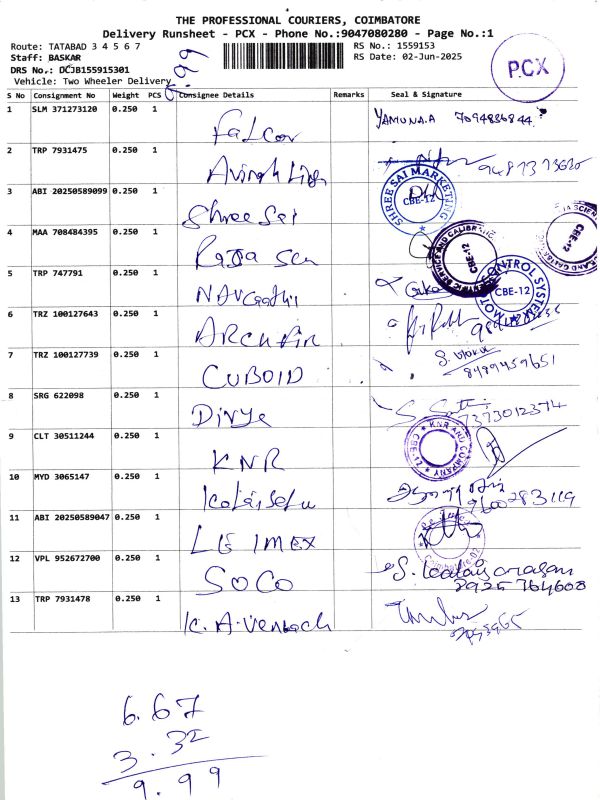 THE PROFESSIONAL COURIERS, COIMBATORE
Delivery Runsheet - PCX - Phone No.:9047080280 - Page No.:1
Route: TATABAD 3 4 5 6 7
RS No.: 1559153
Staff: BASKAR
RS Date: 02-Jun-2025
DRS No.: DCJB155915301
Vehicle: Two Wheeler Delivery
9.99
PCX
S No Consignment No Weight PCS Consignee Details Remarks Seal & Signature
1 SLM 371273120 0.250 1 Falcon YAMUNA.A 7094836844
2 TRP 7931475 0.250 1
3 ABI 20250589099 0.250 1 Shree Sai SHREE SAI MARKETING CBE-12
4 MAA 708484395 0.250 1 CBE-12
5 TRP 747791 0.250 1 MOTOR CONTROL SYSTEM CBE-12
6 TRZ 100127643 0.250 1
7 TRZ 100127739 0.250 1 CUBOID 8489459651
8 SRG 622098 0.250 1 Divya 7373012374
9 CLT 30511244 0.250 1 KNR KNR AND COMPANY CBE-12
10 MYD 3065147 0.250 1 9600283119
11 ABI 20250589047 0.250 1 LE IMEX Coimbatore-02
12 VPL 952672700 0.250 1 SOCO 2925764608
13 TRP 7931478 0.250 1 K. A. Venkach
6.67
3.32
9.99